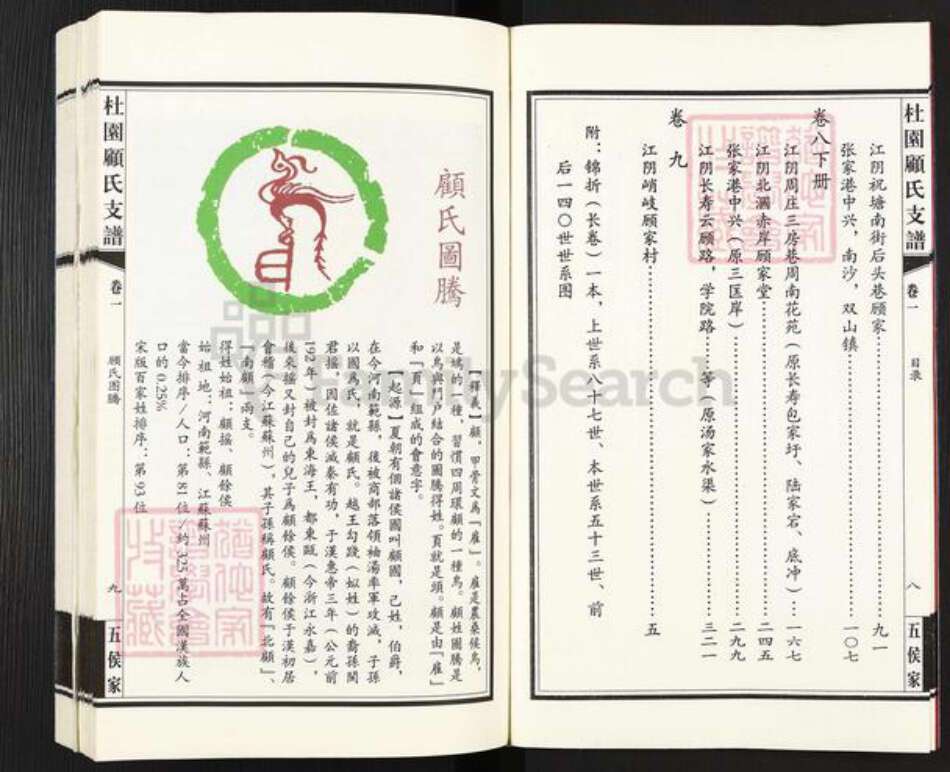 杜園顧氏支譜
卷一
目录
八
五侯家
江阴祝塘南街后头巷顾家……九一
张家港中兴，南沙，双山镇……一〇七
卷八下册
江阴周庄三房巷周南花苑（原长寿包家圩、陆家宕、底冲）…一六七
江阴北漍赤岸顾家堂……二四五
张家港中兴（原三匡岸）……二九九
江阴长寿云顾路，学院路……等（原汤家水渠）……三二一
卷九
江阴峭岐顾家村……五
附：錦折（长卷）一本，上世系八十七世、本世系五十三世、前
后一四〇世世系图
顧氏圖騰
【釋義】顧，甲骨文爲「雇」。雇是農桑候鳥，
是鳸的一種，習慣四周環顧的一種鳥。顧姓圖騰是
以鳥與門戶結合的圖騰得姓。頁就是頭。顧是由「雇」
和「頁」組成的會意字。
【起源】夏朝有個諸侯國叫顧國，己姓，伯爵，
在今河南範縣，後被商部落領袖湯率軍攻滅，子孫
以國爲氏，就是顧氏。越王勾踐（姒姓）的裔孫閩
君搖，因佐諸侯滅秦有功，于漢惠帝三年（公元前
192年）被封爲東海王，都東甌（今浙江永嘉），
後來搖又封自己的兒子爲顧餘侯。顧餘侯于漢初居
會稽（今江蘇蘇州），其子孫稱顧氏。故有「北顧」、
「南顧」兩支。
得姓始祖：顧搖、顧餘侯
始祖地：河南範縣、江蘇蘇州
當今排序/人口：第81位/約325萬占全國漢族人
口的0.25%
宋版百家姓排序：第93位
杜園顧氏支譜
卷一
顾氏图腾
九
五侯家
FamilySearch